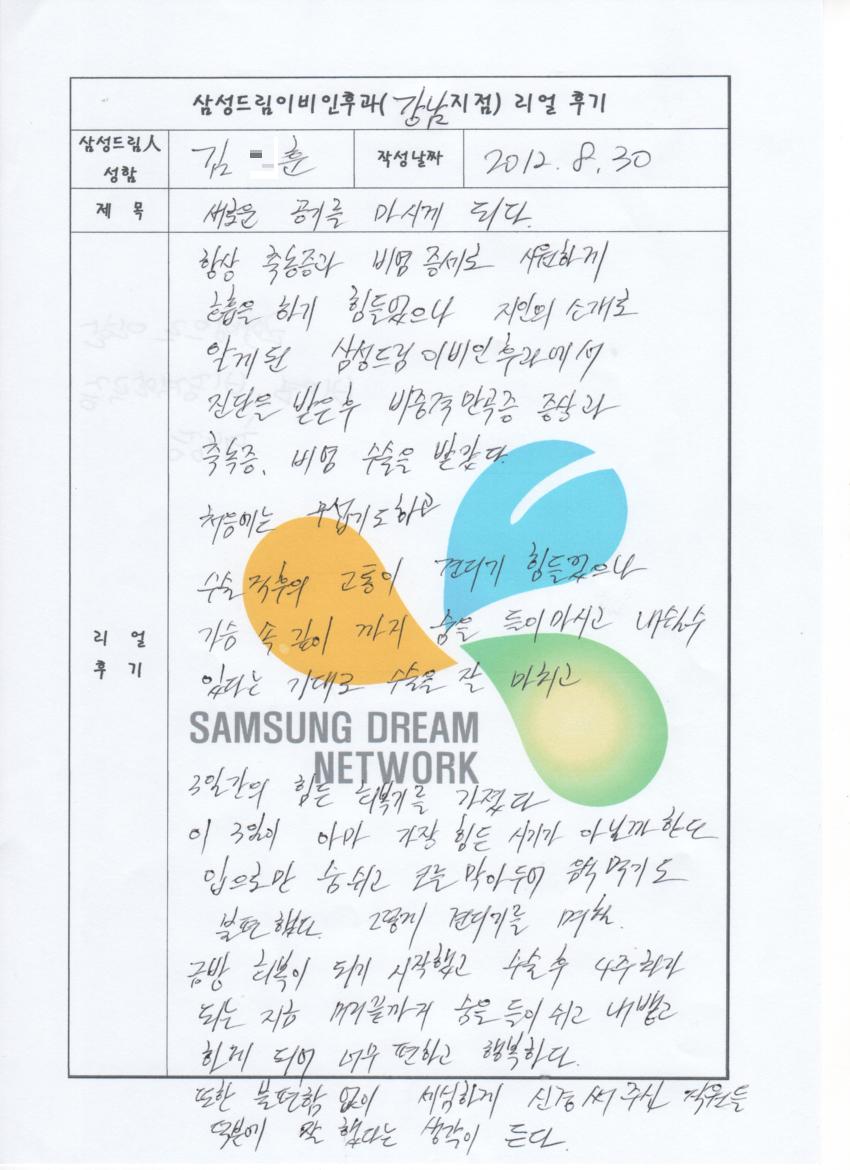 삼성드림이비인후과(강남지점) 리얼 후기
삼성드림人 성함 김 훈 작성날짜 2012. 8. 30
제 목 새로운 공기를 마시게 되다.
리 얼 후 기
항상 축농증과 비염 증세로 시원하게
호흡을 하기 힘들었으나 지인의 소개로
알게된 삼성드림이비인후과에서
진단을 받은후 비중격만곡증 증상과
축농증, 비염 수술을 받았다.
처음에는 무섭기도하고
수술 직후의 고통이 견디기 힘들었으나
가슴 속 깊이 까지 숨을 들이마시고 내쉴수
있다는 기대로 수술을 잘 마치고
SAMSUNG DREAM
NETWORK
3일간의 힘든 회복기를 가졌다
이 3일이 아마 가장 힘든 시기가 아닐까한다
입으로만 숨쉬고 코를 막아두어 음식 먹기도
불편했다. 그렇게 견디기를 며칠.
금방 회복이 되기 시작했고 수술후 4주차가
되는 지금 머리끝까지 숨을 들이 쉬고 내뱉고
하게 되어 너무 편하고 행복하다.
또한 불편함 없이 세심하게 신경써주신 직원들
덕분에 잘 했다는 생각이 든다.